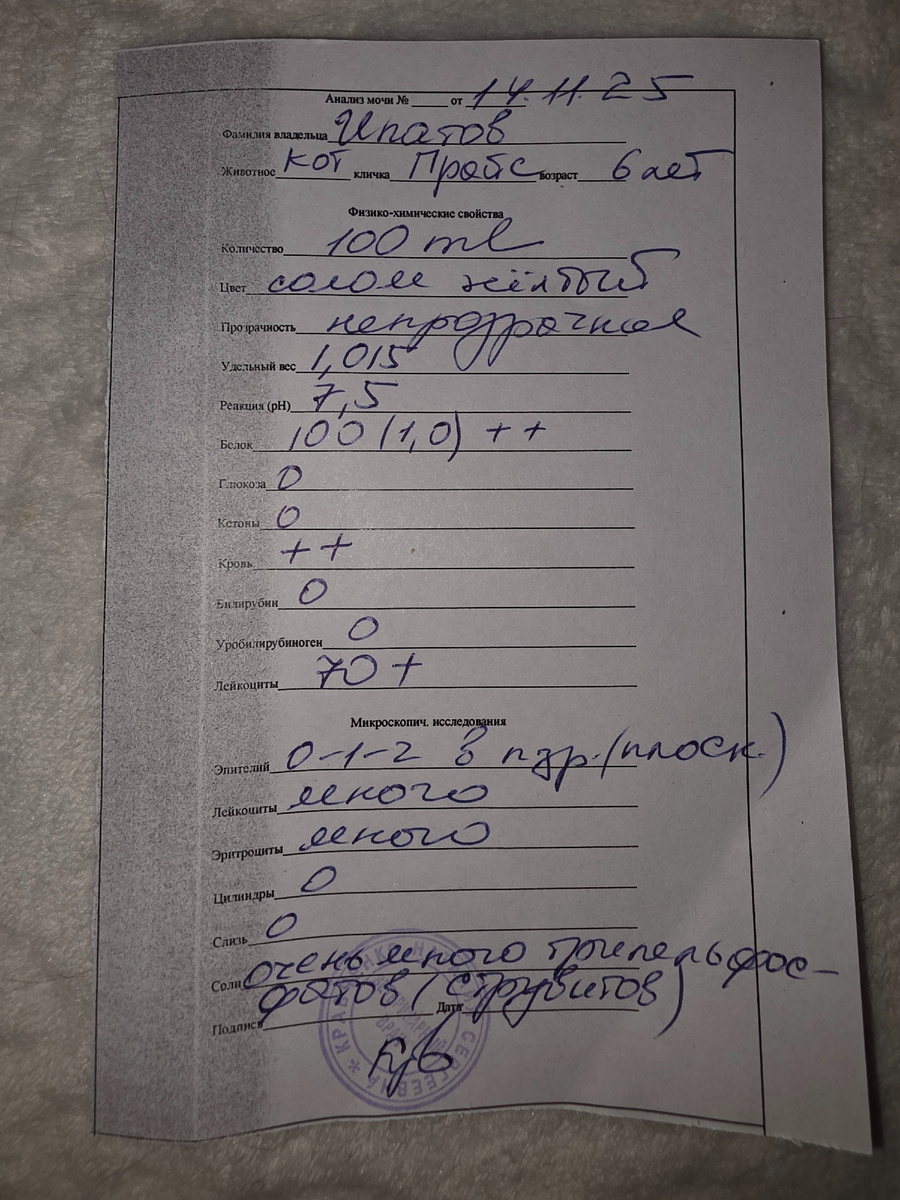 Анализ мочи № ____ от 14.11.25
Фамилия владельца Ипатов
Животное кот кличка Прайс возраст 6 лет
Физико-химические свойства
Количество 100 ml
Цвет солом жёлтый
Прозрачность непрозрачная
Удельный вес 1,015
Реакция (pH) 7,5
Белок 100 (1,0) ++
Глюкоза 0
Кетоны 0
Кровь ++
Билирубин 0
Уробилирубиноген 0
Лейкоциты 70 +
Микроскопич. исследования
Эпителий 0-1-2 в п.зр. (плоск.)
Лейкоциты много
Эритроциты много
Цилиндры 0
Слизь 0
Соли очень много трипельфос-
фатов (струвитов)
Подпись Дата
СЕРГЕЕВНА